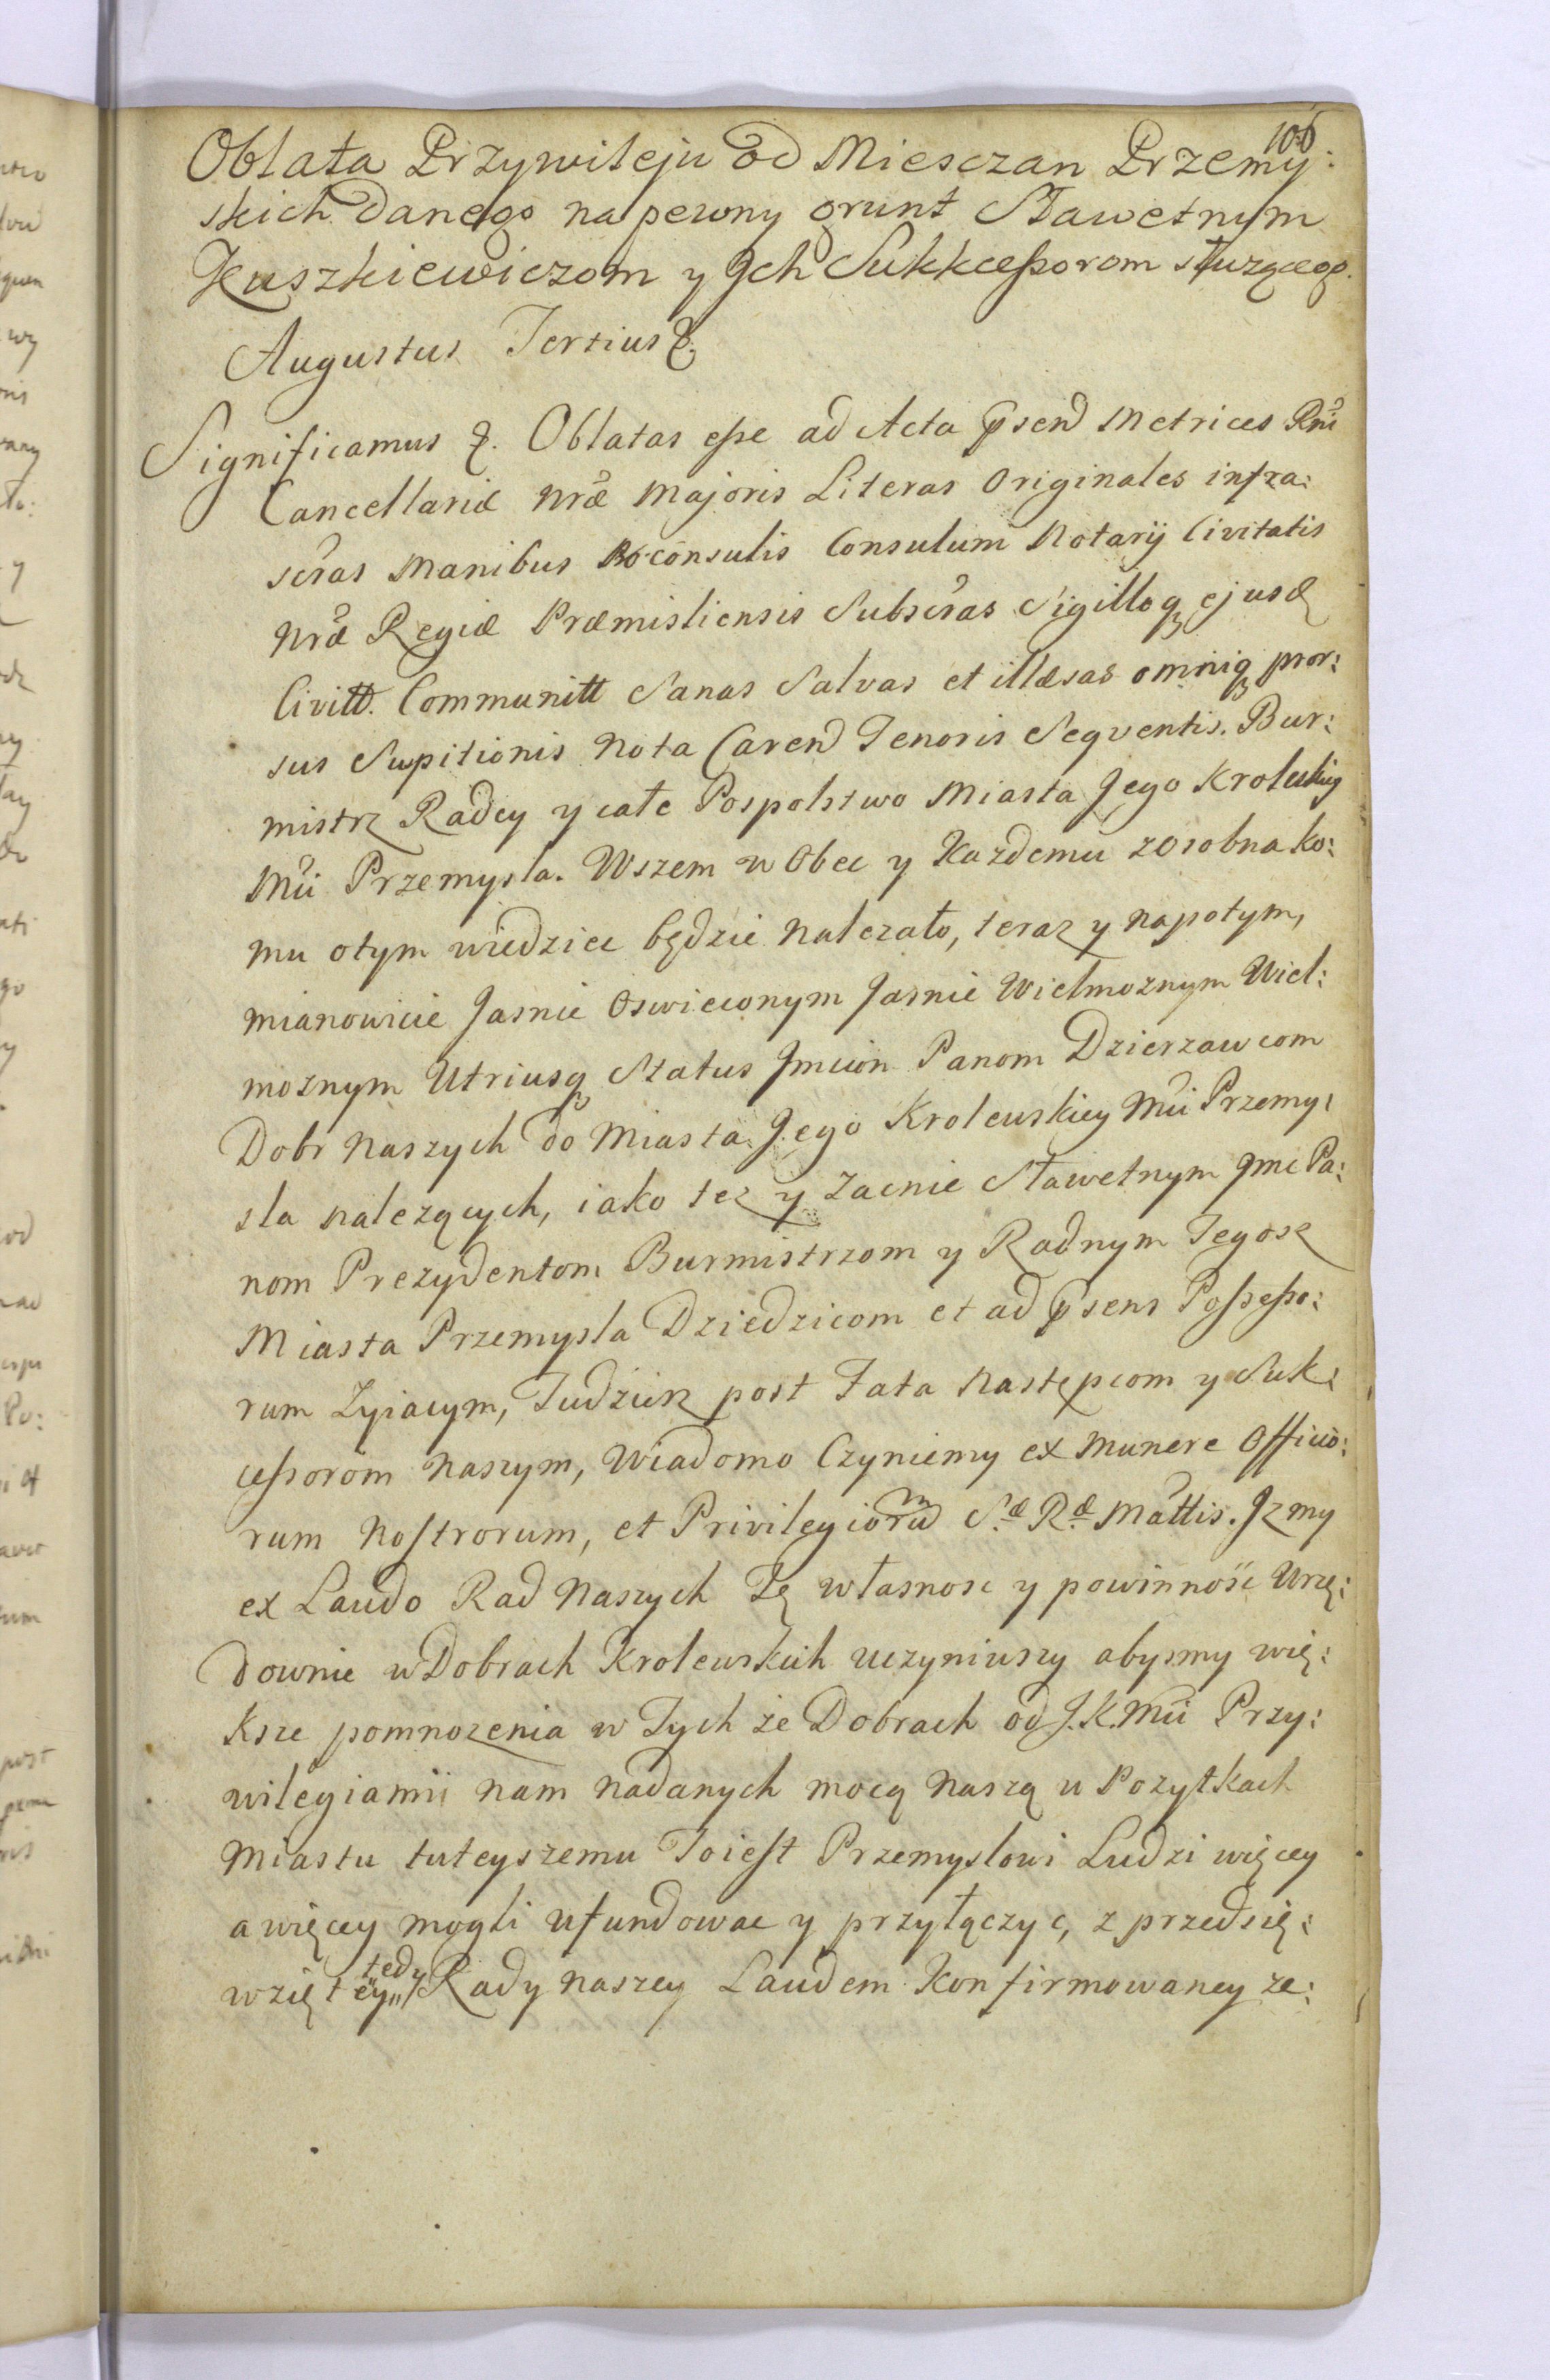 106
Oblata Przywileju od Miesczan Przemy:
skich danego na pewny grunt Sławetnym
Kuszkiewiczom y Jch Sukkcessorom słuzącego.
Augustus Tertius &.
Significamus &. Oblatas esse ad Acta psend Metrices Rni
Cancellariæ nræ Majoris Literas Originales infra:
scras Manibus Proconsulis Consulum Notarij Civitatis
nræ Regiæ Præmisliensis Subscras Sigilloq ejusd
Civitt. Communitt Sanas Salvas et illæsas omniq pror:
sus Suspitionis nota Carend Tenoris Seqventis. Bur:
mistrz Radcy y całe Pospolstwo Miasta Jego Krolewskiey
Mci Przemysla. Wszem w Obec y Kazdemu zosobna ko:
mu otym wiedziec będzie nalezało, teraz y napotym,
mianowicie Jasnie Oswieconym Jasnie Wielmoznym Wiel:
moznym Utriusq Status Jmciom Panom Dzierzawcom
Dobr naszych do Miasta Jego Krolewskiey Mci Przemy:
sla nalezących, iako tez y Zacnie Sławetnym Jmc Pa:
nom Prezydentom Burmistrzom y Radnym Tegosz
Miasta Przemysla Dziedzicom et ad psens Possesso:
rum Zyiacym, Tudziesz post Fata Następcom y Suk:
cessorom naszym, Wiadomo Czyniemy ex Munere Officio:
rum Nostrorum, et Privilegiorum S.æ R.æ Mattis. Jz my
ex Laudo Rad Naszych Tę własnosc y powinnosc Urzę:
downie w Dobrach Krolewskich uczyniwszy abysmy wię:
ksze pomnozenia w Tych ze Dobrach od J.K.Mci Przy:
wilegiamii nam nadanych mocą naszą w Pozytkach
Miastu tuteyszemu Toiest Przemyslowi Ludzi więcey
a więcey mogli ufundowac y przyłączyc, z przedsię:
wziętey tedy Rady naszey Laudem Konfirmowaney ze: